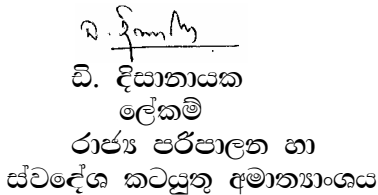 ඩී. දිසානායක
ලේකම්
රාජ්‍ය පරිපාලන හා
ස්වදේශ කටයුතු අමාත්‍යාංශය